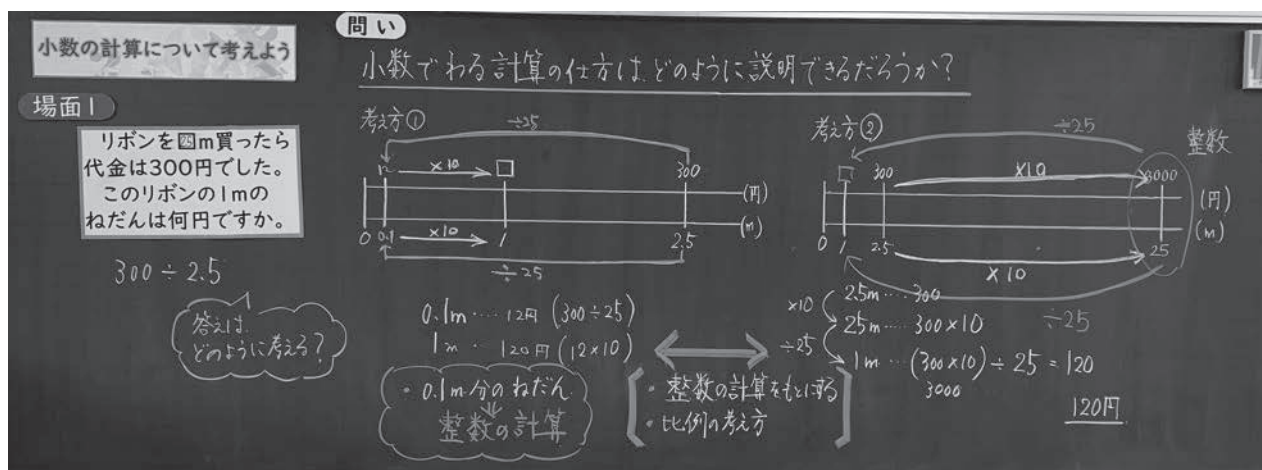 小数の計算について考えよう
場面1
リボンを2.5m買ったら
代金は300円でした。
このリボンの1mの
ねだんは何円ですか。
300÷2.5
答えは、
どのように考える?
問い
小数でわる計算の仕方は、どのように説明できるだろうか?
考え方①
÷25
12 ×10 □ 300
(円)
(m)
0 0.1 ×10 1 2.5
÷25
0.1m‥‥12円(300÷25)
1m‥120円(12×10)
・0.1m分のねだん
整数の計算
・整数の計算をもとにする
・比例の考え方
考え方②
÷25
整数
□ 300 ×10 3000
(円)
(m)
0 1 2.5 25
×10
÷25
×10 2.5m‥‥300
25m‥‥300×10
÷25
1m‥(300×10)÷25=120
3000
120円